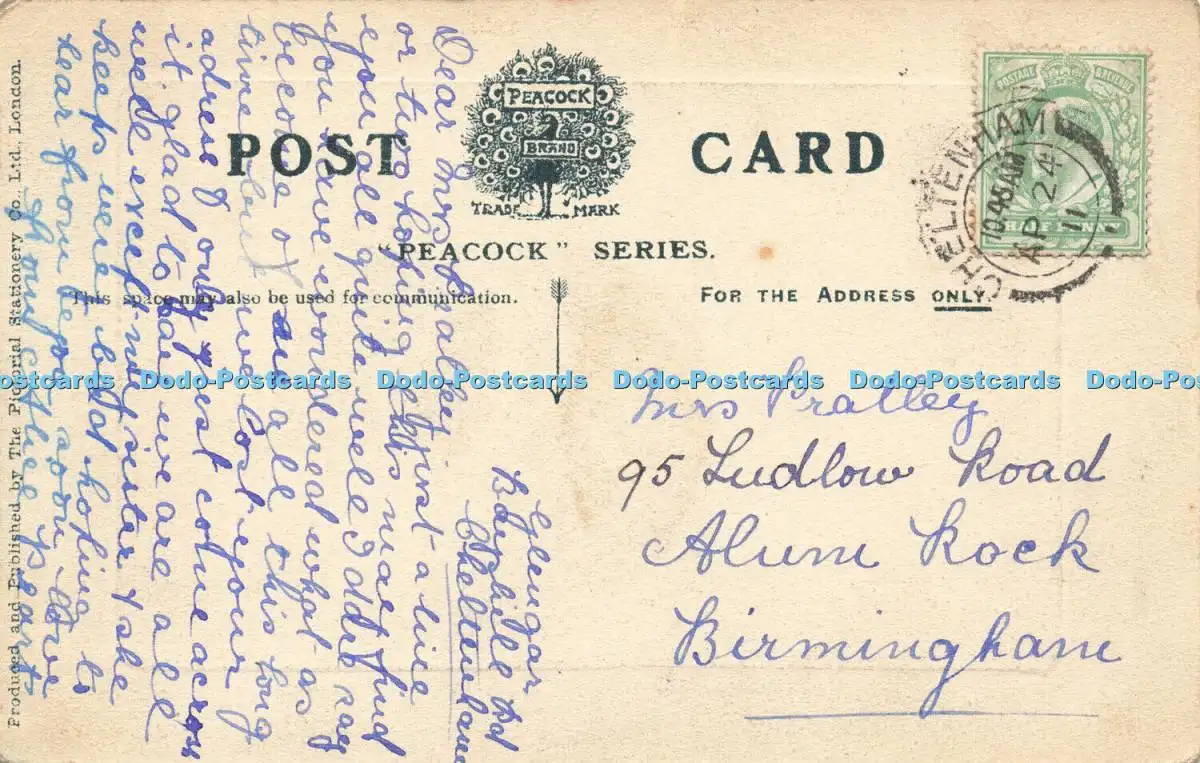 POST CARD
PEACOCK
BRAND
TRADE MARK
"PEACOCK" SERIES.
This space may also be used for communication.
FOR THE ADDRESS ONLY
POSTAGE & REVENUE
HALF PENNY
CHELTENHAM
10.45 AM
AP 24
11
Mrs Pratley
95 Ludlow Road
Alum Rock
Birmingham
Glengar
Bayshill Rd
Cheltenham
Dear Mrs Prealley first a line
or two hoping this may find
you all quite well I dare say
you have wondered what as
become of us all this long
time but we lost your
adress only just come across
it glad to say we are all
well except my sister & she
keeps very bad hoping to
hear from you soon love
to all
Produced and Published by The Pictorial Stationery Co. Ltd., London.
Dodo-Postcards Dodo-Postcards Dodo-Postcards Dodo-Postcards Dodo-Postcards